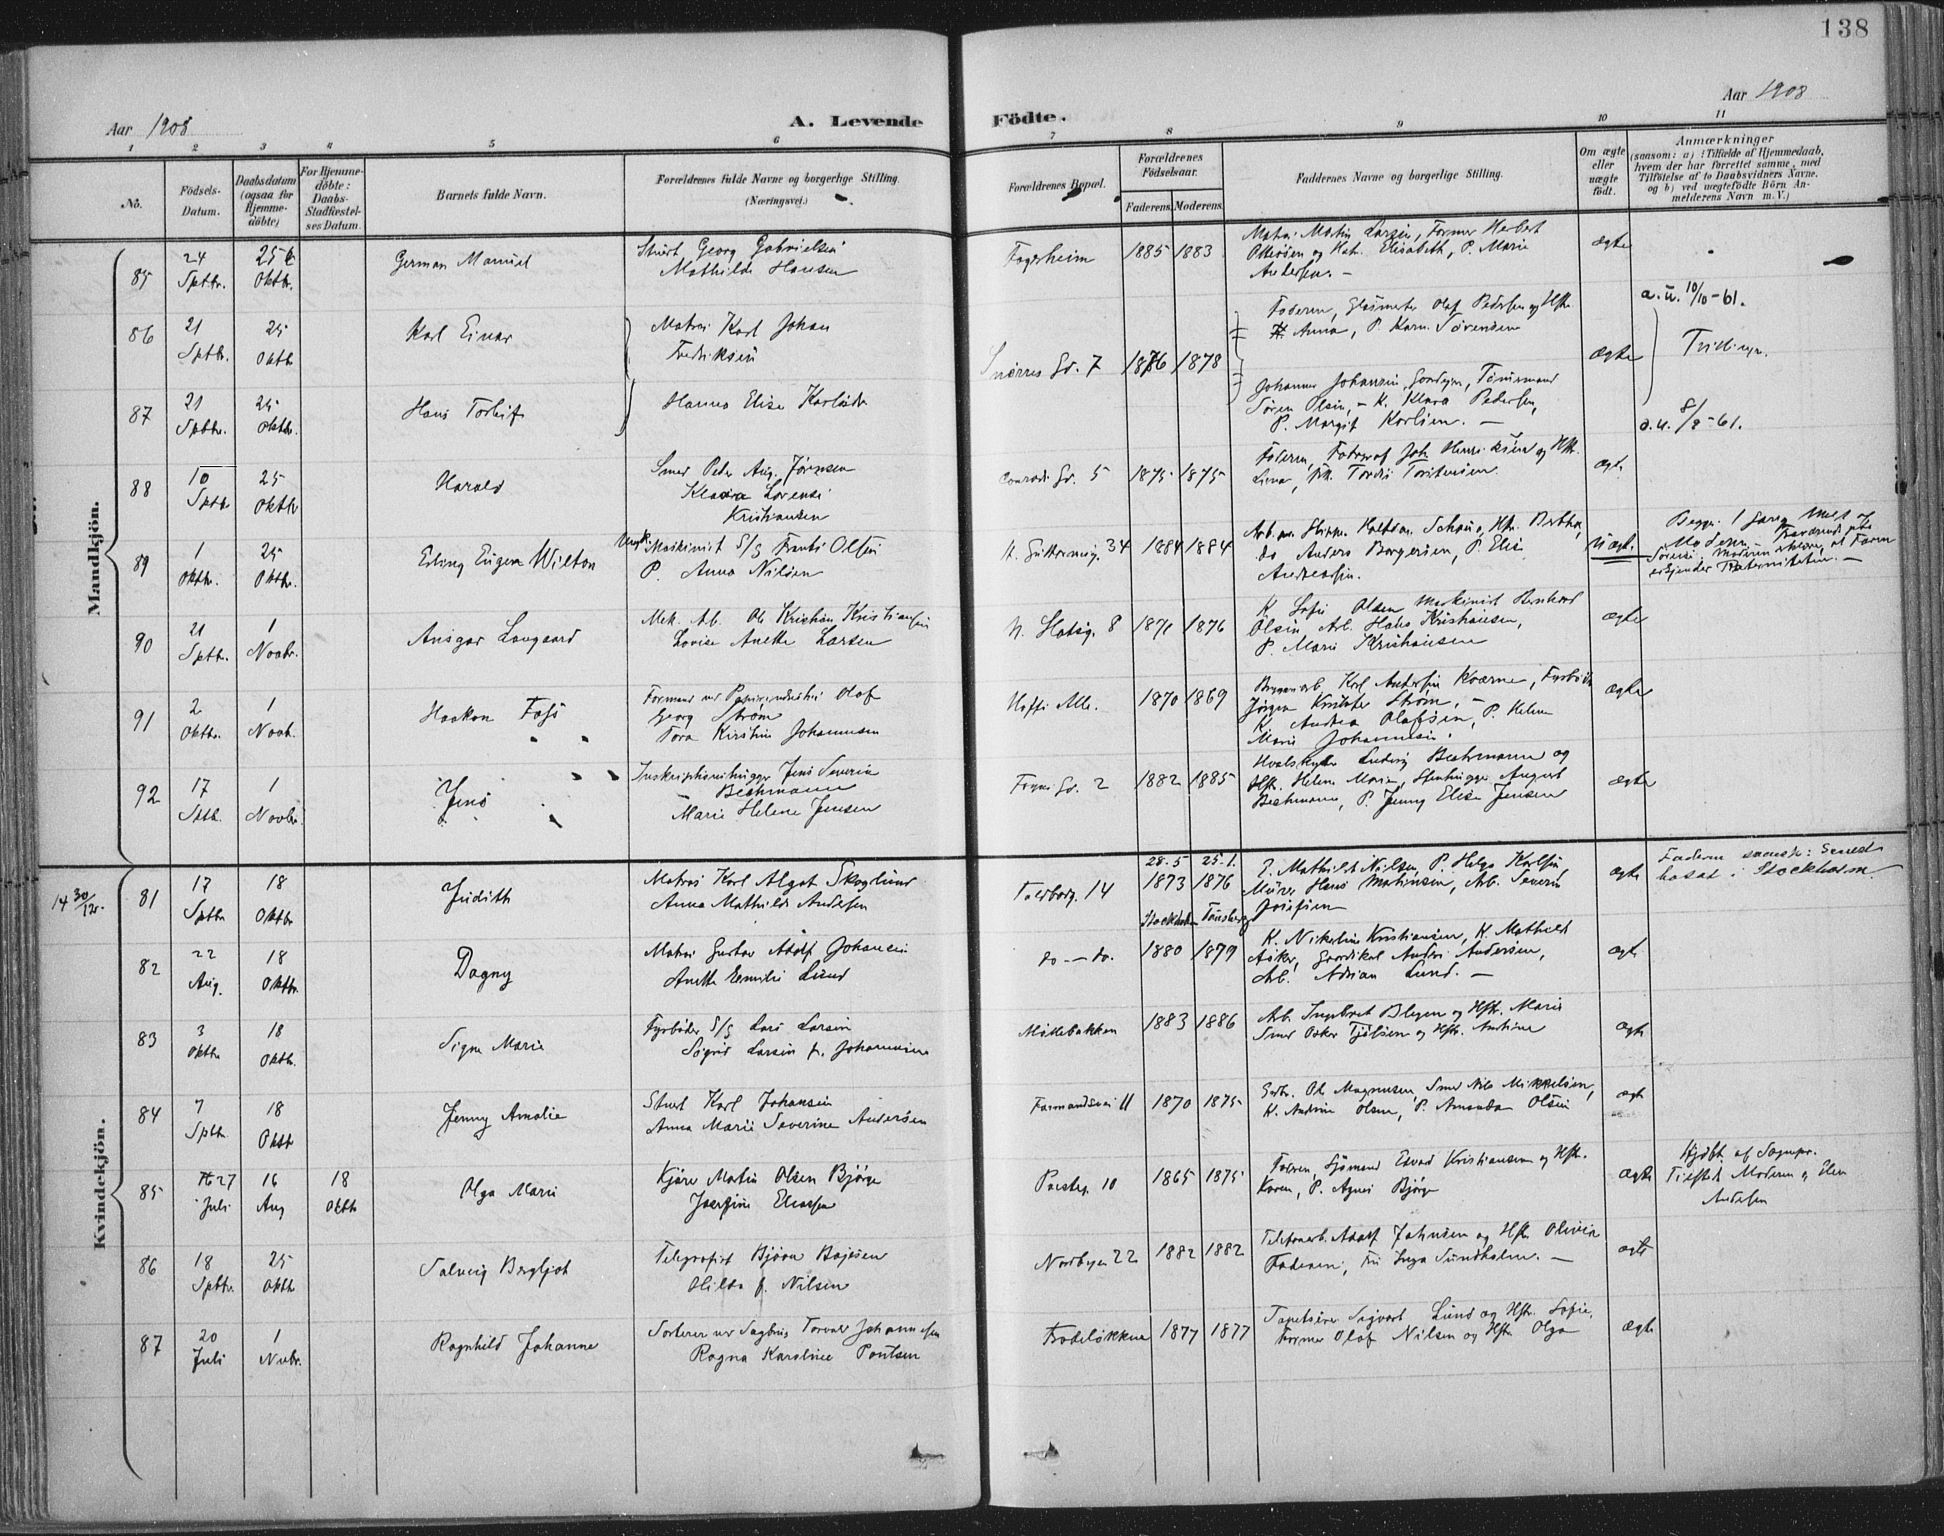 138
Aar 1908
Aar 1908
A. Levende Födte.
1 2 3 4 5 6 7 8 9 10 11
No.
Födsels-Datum.
Daabsdatum (ogsaa för Hjemme-döbte)
For Hjemme-döbte: Daabs-Stadfæstel-ses Datum.
Barnets fulde Navn.
Forældrenes fulde Navne og borgerlige Stilling.
(Næringsvej.)
Forældrenes Bopæl.
Forældrenes Födselsaar.
Faderens. Moderens.
Faddernes Navne og borgerlige Stilling.
Om ægte eller uægte födt.
Anmærkninger
(saasom: a) i Tilfælde af Hjemmedaab, hvem der har forrettet samme, med Tilföielse af to Daabsvidners Navne. og b) ved uægtefödte Börn Anmelderens Navn m. V.)
Mandkjön.
85 24 Sptbr. 25 Oktbr. German Manuel
Stuert Georg Gabrielsen
Mathilde Hansen
Fagerheim 1885 1883
Matros Martin Larsen, Former Herbert
Elisabeth, P. Marie
Andersen. —
ægte
a.u. 10/10-61.
86 21 Sptbr. 25 Oktb Karl Einar
Matros Karl Johan
Fredriksen
Snorres Gd. 7 1876 1878
Faderen, Olaf Pedersen og Hst.
Anna, P. Karn. Sørensen
ægte
Tvilling.
87 21 Sptbr. 25 Oktbr. Hans Torleif
Hanna Elise Karlsdr
Johannes Johansen, Tømmermand
Søren Olsen, — K. Klara Pedersen,
P. Margit Karlsen. —
a.u. 8/8-61.
88 10 Sptb 25 Oktbr Harald
Smed Peder Aug. Jørnsen
Klara Lorense
Kristiansen
Conradi Gd. 5 1875 1875
Faderen, Joh. Henriksen og Hst.
Torstensen.
ægt.
89 1 Oktbr. 25 Oktbr. Erling Eugen Wilton
Ungk. Maskinist S/S Frants Olsen
P. Anna Nilsen
34 1884 1884
Bertha,
do Anders Borgersen, P. Elise
Andreassen.
Uægt.
Moderen
erkjender Paterniteten. —
90 21 Sptbr. 1 Novbr. Ansgar Langaard
Mek. Arb. Ole Kristian Kristiansen
Lovise Anette Larsen
N. Slotsg. 8 1871 1876
K. Sofie Olsen, Maskinist Bernhard
Olsen, Arb. Hans Kristiansen,
P. Marie Kristiansen
ægte
91 2 Oktbr. 1 Novb. Haakon Fajo
Formand ved Papirindustri Olaf
Georg Strøm
Tora Kirstine Johannesen
Hoffs Alle. 1870 1869
Bryggearb. Karl Andersen Kværne, Fyrbøder
Jørgen Strøm, —
K. Andrea Olafsen, P. Helene
Marie Johannesen.
ægte
92 17 Sptb. 1 Novbr. Jens
Inskriptionshugger Jens Severin
Bechmann
Marie Helene Jensen
Frams Gd. 2 1882 1885
Hvalskytter Ludvig Bechmann og
Hst. Helene Marie, Stenhugger August
Bechmann, P. Jenny Elise Jensen
ægte
Kvindekjön.
14 30/12r.
81 17 Sptbr 18 Oktbr Judith
Matros Karl Algot Skoglund
Anna Mathilde Andersen
Farborg. 14
28-5 1873 Stockholm
25-1. 1876 Tønsberg
P. Mathilde Nilsen, P. Helga Karlsen
Murer Hans Martinsen, Arb. Severin
Josefsen
ægte
Faderen svensk: Senest
bosat i Stockholm.
82 22 Aug. 18 Oktbr. Dagny
Matros Gustav Adolf Johansen
Anette Emilie Lund
do — do. 1880 1879
K. Nikoline Kristiansen, K. Mathilde
Asker, Gaardskarl Anders Andersen,
Arb. Adrian Lund. —
ægte
83 3 Oktbr 18 Oktbr. Signe Marie
Fyrbøder S/S Lars Larsen
Sigrid Larsen f. Johannesen
Møllebakken 1883 1886
Arb. Ingebret Blegen og Hst. Marie
Smed Oskar Tjølsen og Hst. Antine
ægte
84 7 Sptbr. 18 Oktb Jenny Amalie
Stuert Karl Johansen
Anna Marie Severine Andersen
Farmandsvei 11 1870 1875
Gartn. Ole Magnussen, Smed Nils Mikkelsen,
K. Andrine Olsen, P. Amanda Olsen
ægte
85 27 Juli 16 Aug 18 Oktb Olga Marie
Kjører Martin Olsen Bjørge
Josefine Eliassen
Parkg. 10 1865 1875
Faderen, Sjømand Edvard Kristiansen og Hst.
Karen, P. Agnes Bjørge
ægte
Hjdøbt af Sognepr.
Tilstede Moderen og Elen
Andersen
86 18 Sptbr. 25 Oktb Solveig Bergljot
Telegrafist Bjørn Bojesen
Hilda f. Nilsen
Nordbyen 22 1882 1882
Telefonarb. Adolf Johnsen og Hst. Olivia
Faderen, Fru Inga Sundholm. —
ægte
87 20 Juli 1 Nvbr. Ragnhild Johanne
Sorterer ved Sagbrug Torvald Johannesen
Ragna Karoline Poulsen
Frodeløkken 1877 1877
Tapetserer Sigvart Lund og Hst. Sofie,
Former Olaf Nilsen og Hst. Olga
ægte